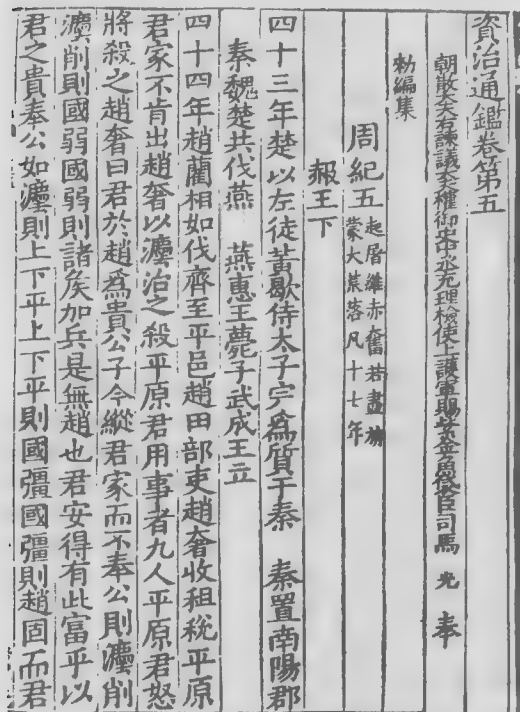 資治通鑑卷第五
朝散大夫右諫議大夫權御史中丞充理檢使上護軍賜紫金魚袋臣司馬 光 奉
勑編集
周紀五 起屠維赤奮若盡旃
蒙大荒落凡十七年
赧王下
四十三年楚以左徒黃歇侍太子完爲質于秦 秦置南陽郡
秦魏楚共伐燕 燕惠王薨子武成王立
四十四年趙藺相如伐齊至平邑趙田部吏趙奢收租稅平原
君家不肯出趙奢以灋治之殺平原君用事者九人平原君怒
將殺之趙奢曰君於趙爲貴公子今縱君家而不奉公則灋削
灋削則國弱國弱則諸矦加兵是無趙也君安得有此富乎以
君之貴奉公如灋則上下平上下平則國彊國彊則趙固而君